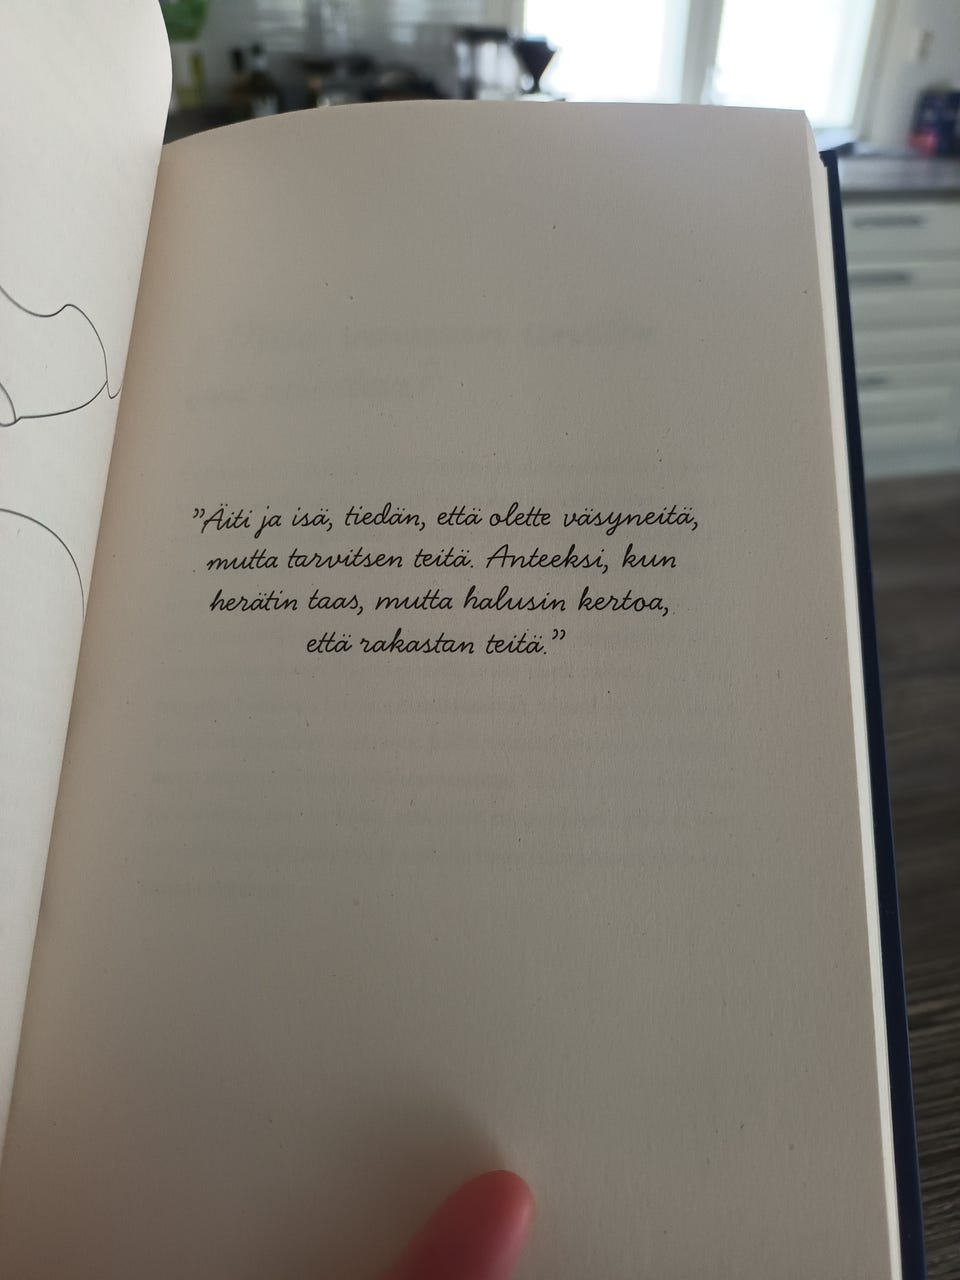 ”Äiti ja isä, tiedän, että olette väsyneitä,
mutta tarvitsen teitä. Anteeksi, kun
herätin taas, mutta halusin kertoa,
että rakastan teitä.”